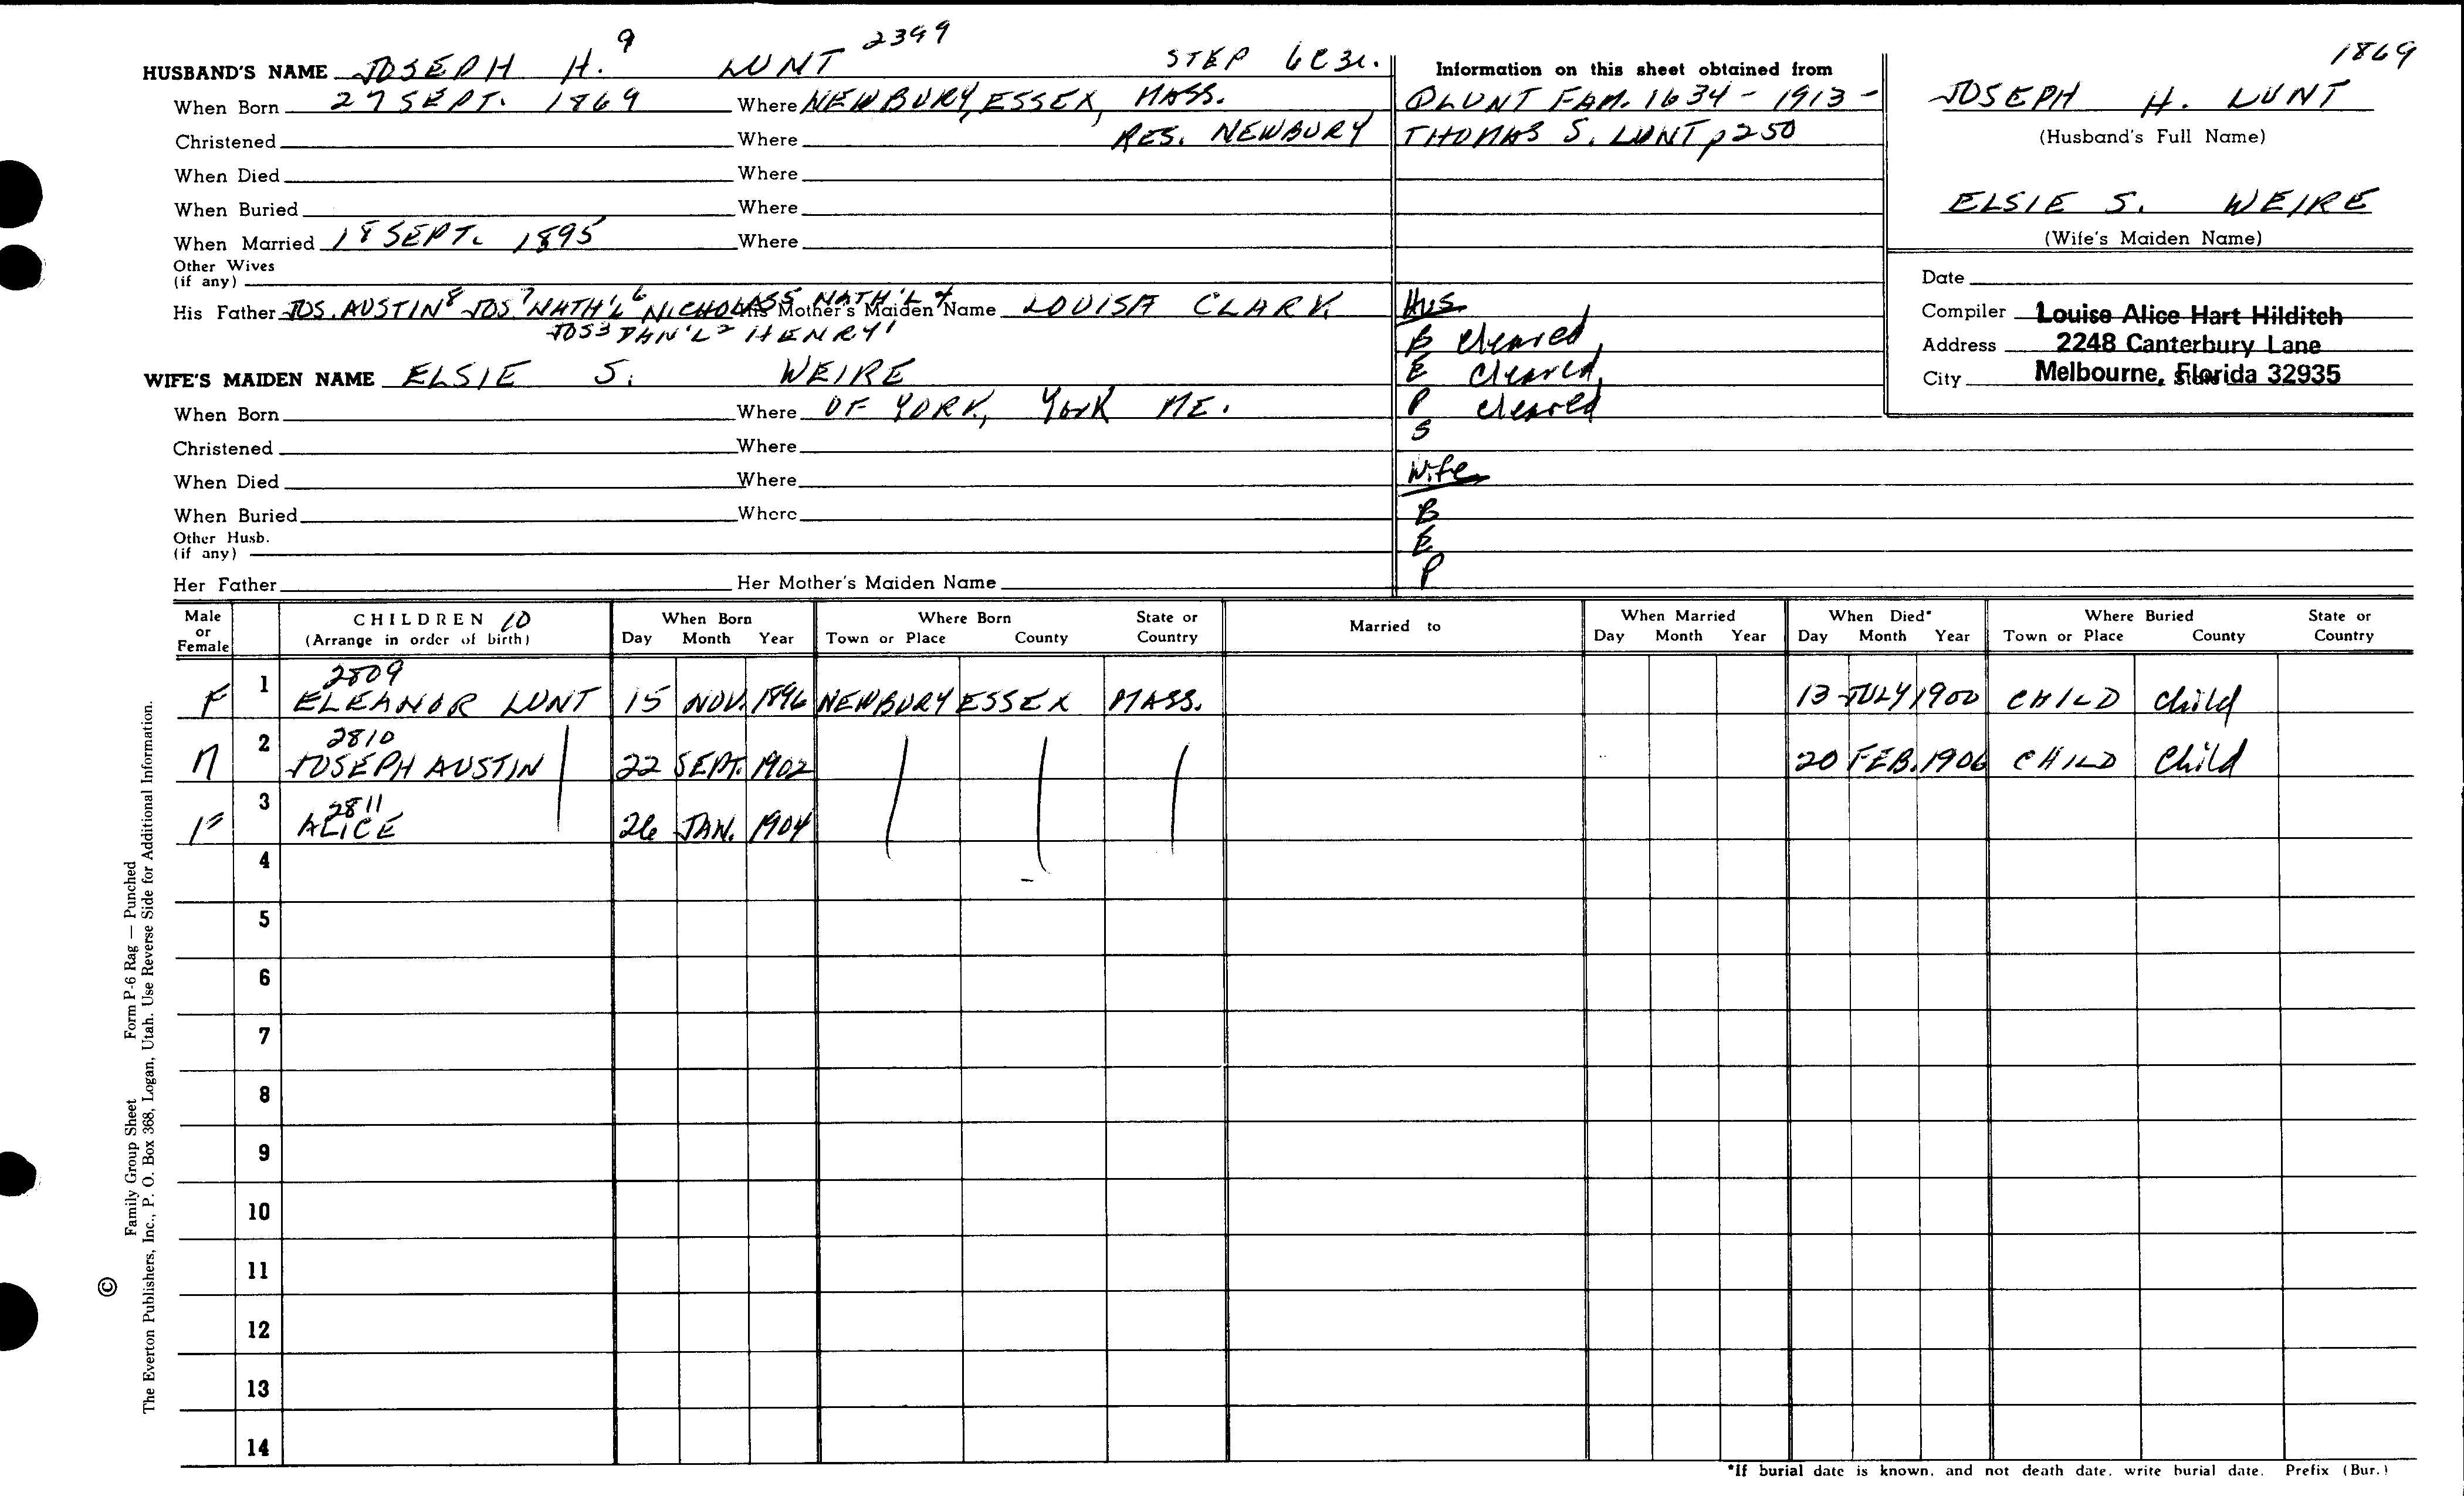 HUSBAND'S NAME JOSEPH H.⁹ LUNT 2399 STEP
When Born 27 SEPT. 1869 Where NEWBURY, ESSEX, MASS.
Christened Where RES. NEWBURY
When Died Where
When Buried Where
When Married 18 SEPT. 1895 Where
Other Wives
(if any)
His Father JOS. AUSTIN⁸ JOS.⁷ NATH'L⁶ NICHOLAS⁵ NATH'L⁴ His Mother's Maiden Name LOUISA CLARK
JOS³ DAN'L² HENRY¹
WIFE'S MAIDEN NAME ELSIE S. WEIRE
When Born Where OF YORK, York ME.
Christened Where
When Died Where
When Buried Where
Other Husb.
(if any)
Her Father Her Mother's Maiden Name
Information on this sheet obtained from
LUNT FAM. 1634 - 1913 -
THOMAS S. LUNT p250
Hus
B cleared
E cleared
P cleared
S
Wife
B
E
P
1869
JOSEPH H. LUNT
(Husband's Full Name)
ELSIE S. WEIRE
(Wife's Maiden Name)
Date
Compiler Louise Alice Hart Hilditch
Address 2248 Canterbury Lane
City Melbourne, Florida 32935
Male or Female CHILDREN 10 (Arrange in order of birth) When Born Day Month Year Where Born Town or Place County State or Country Married to When Married Day Month Year When Died* Day Month Year Where Buried Town or Place County State or Country
2809
F 1 ELEANOR LUNT 15 NOV. 1896 NEWBURY ESSEX MASS. 13 JULY 1900 CHILD Child
2810
M 2 JOSEPH AUSTIN 22 SEPT. 1902 20 FEB. 1906 CHILD Child
2811
F 3 ALICE 26 JAN. 1904
4
5
6
7
8
9
10
11
12
13
14
*If burial date is known, and not death date, write burial date. Prefix (Bur.)
Family Group Sheet Form P-6 Rag — Punched
© The Everton Publishers, Inc., P. O. Box 368, Logan, Utah. Use Reverse Side for Additional Information.